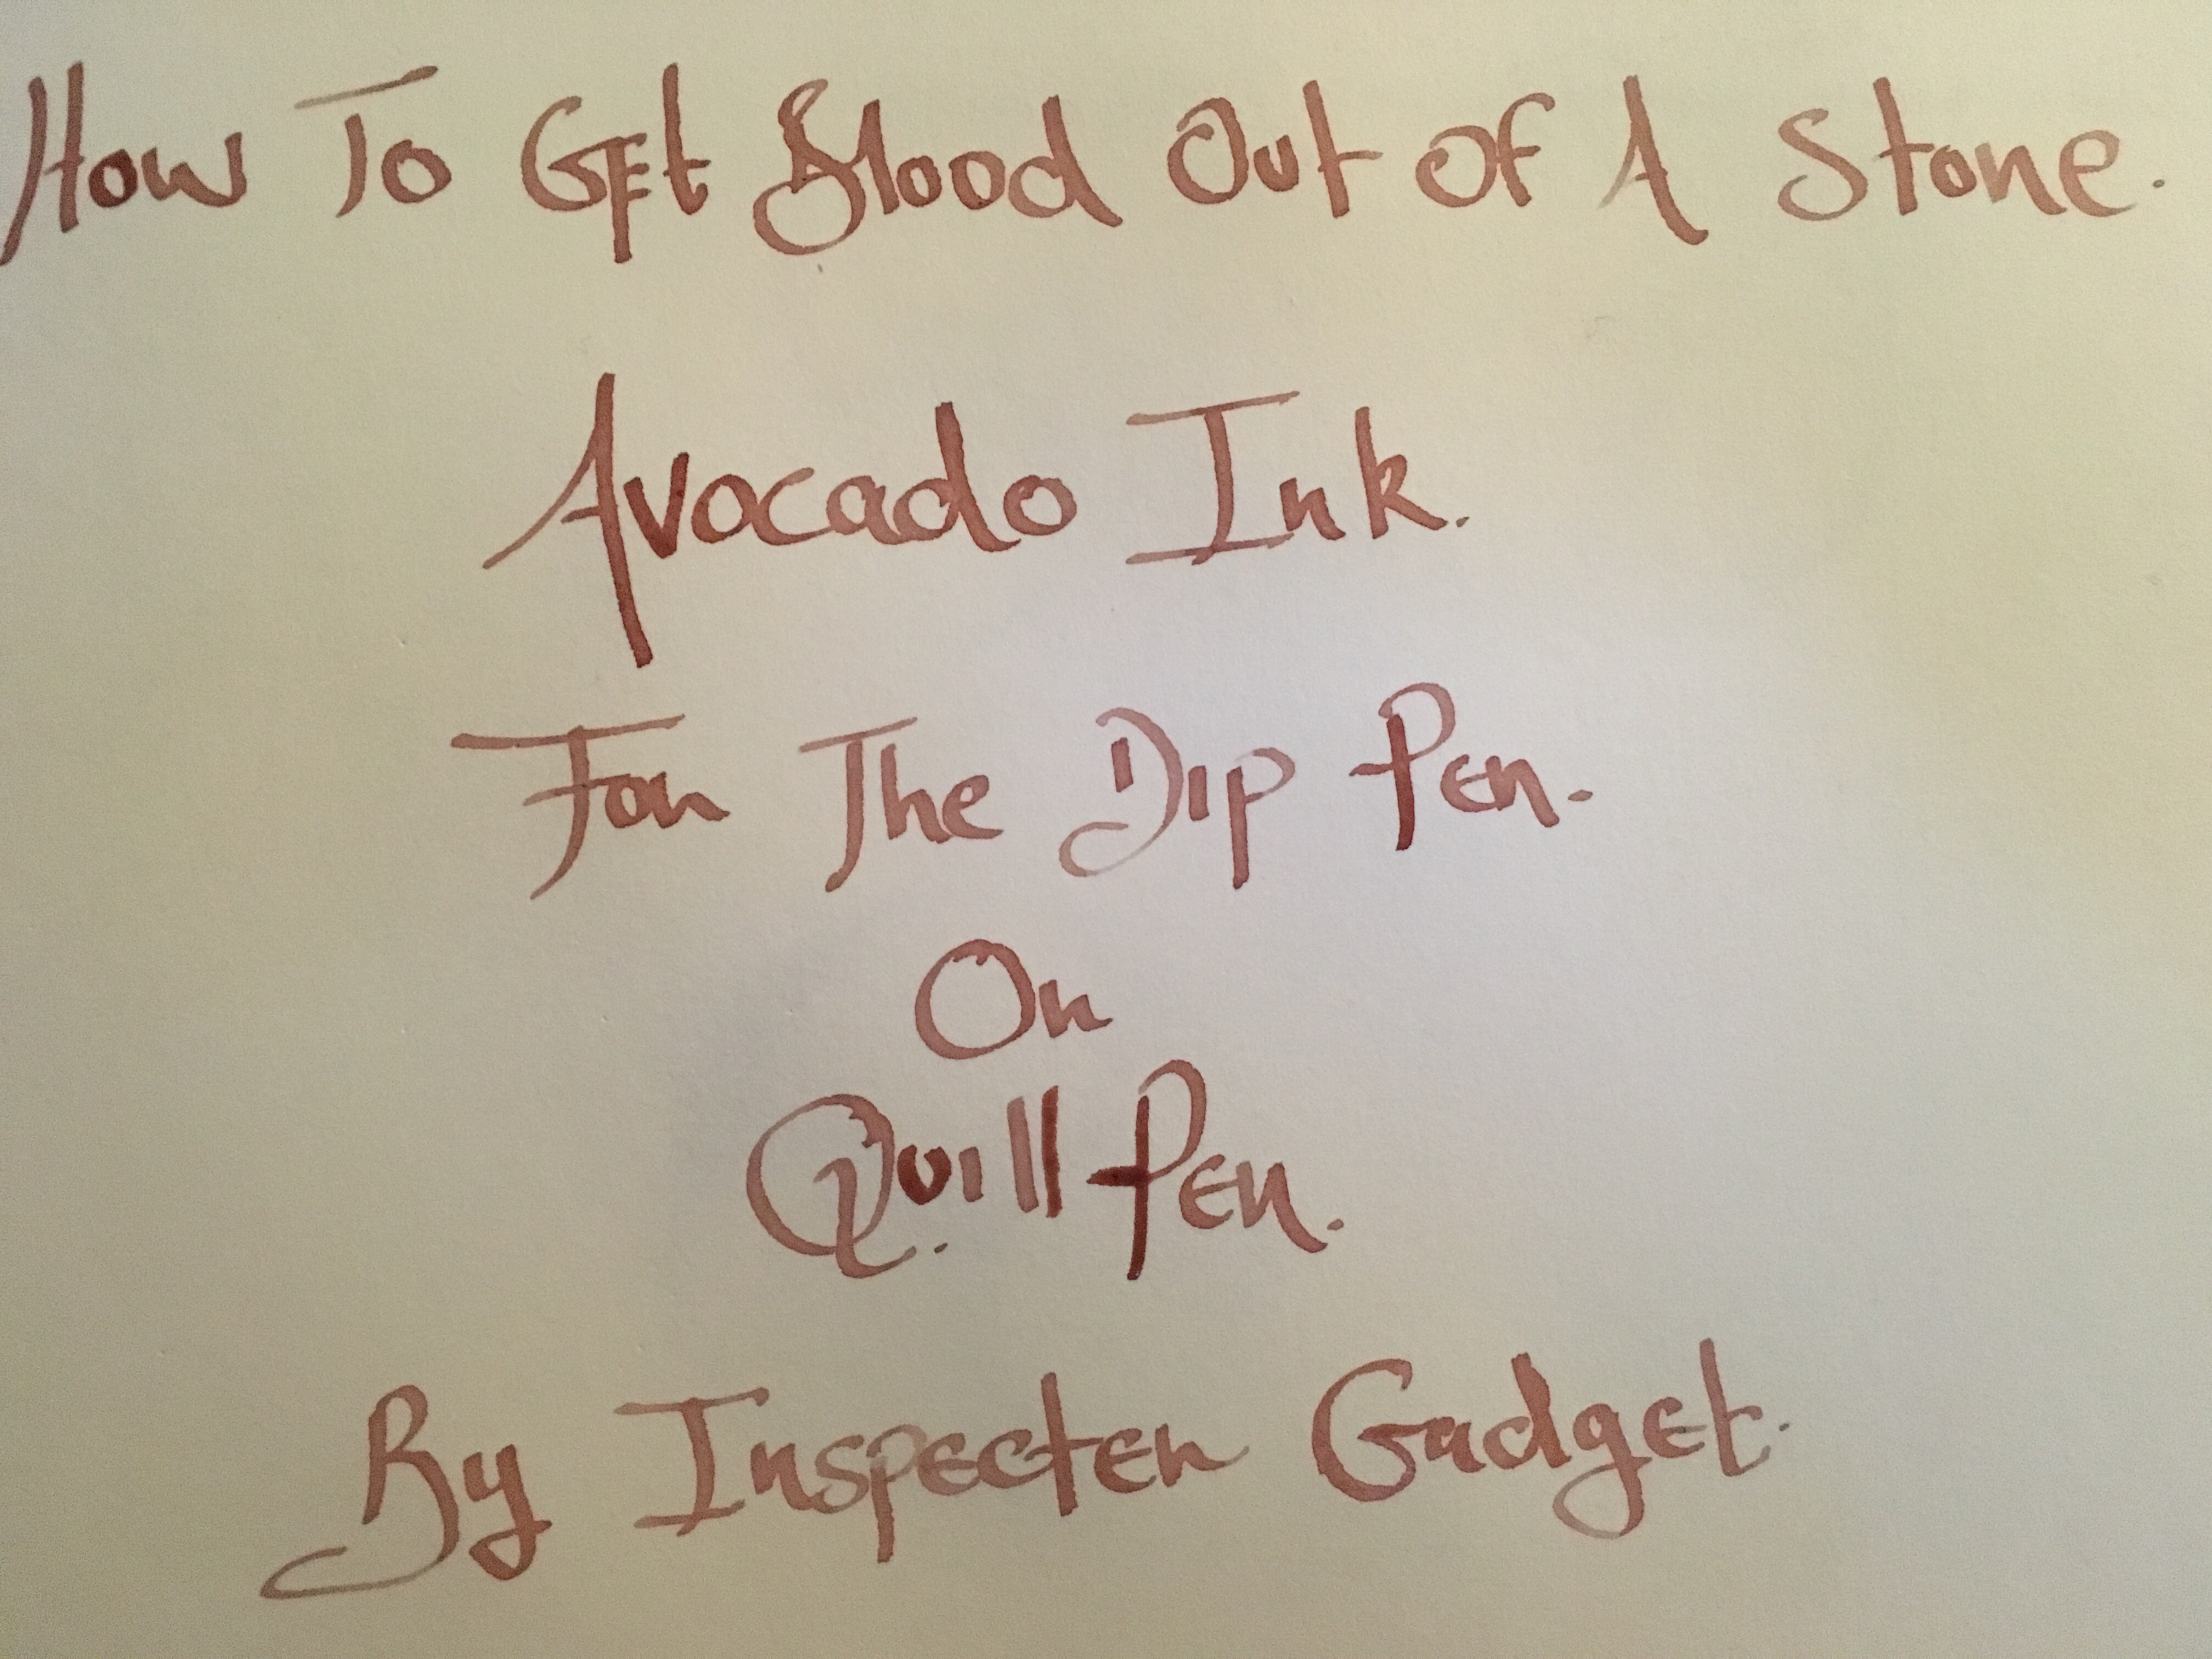 How To Get Blood Out Of A Stone.
Avocado Ink.
For The Dip Pen.
Or
Quill Pen.
By Inspecter Gadget.